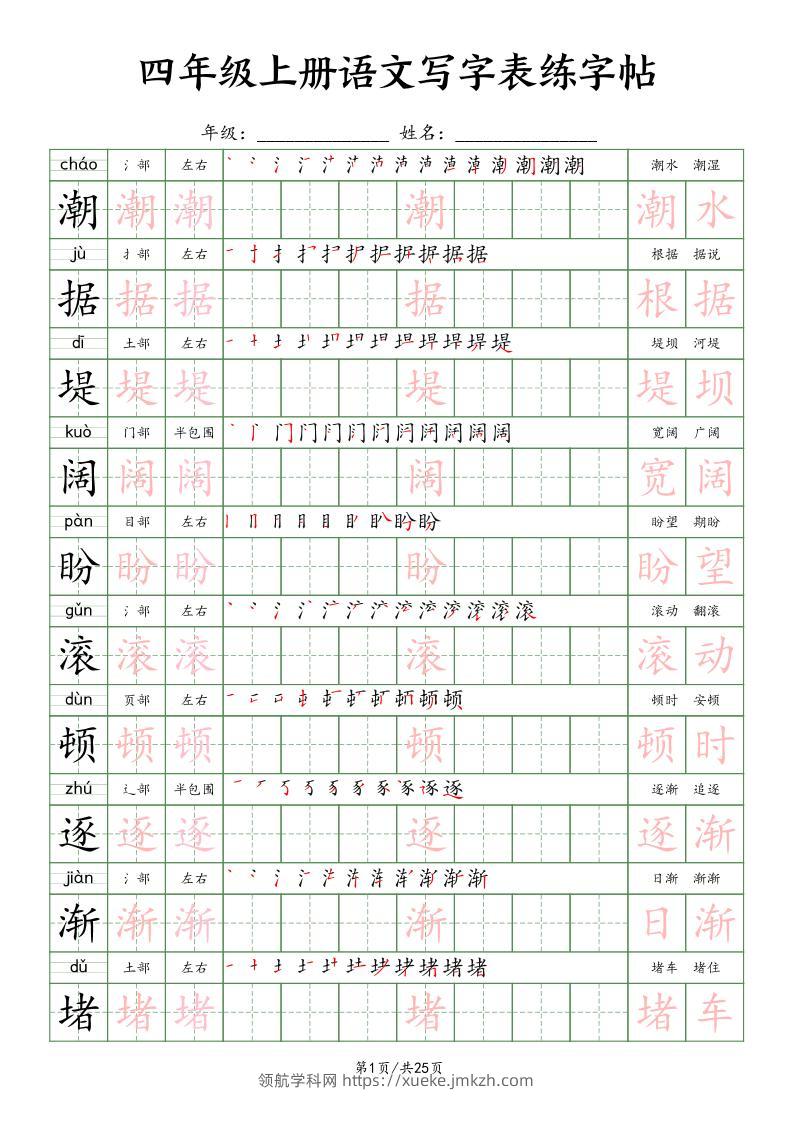 四年级上册语文写字表练字帖
年级：______________ 姓名：_______________
cháo 氵部 左右 潮水 潮湿
潮 潮 潮 潮 潮 水
jù 扌部 左右 根据 据说
据 据 据 据 根 据
dī 土部 左右 堤坝 河堤
堤 堤 堤 堤 堤 坝
kuò 门部 半包围 宽阔 广阔
阔 阔 阔 阔 宽 阔
pàn 目部 左右 盼望 期盼
盼 盼 盼 盼 盼 望
gǔn 氵部 左右 滚动 翻滚
滚 滚 滚 滚 滚 动
dùn 页部 左右 顿时 安顿
顿 顿 顿 顿 顿 时
zhú 辶部 半包围 逐渐 追逐
逐 逐 逐 逐 逐 渐
jiàn 氵部 左右 日渐 渐渐
渐 渐 渐 渐 日 渐
dǔ 土部 左右 堵车 堵住
堵 堵 堵 堵 堵 车
第1页/共25页
领航学科网 https://xueke.jmkzh.com